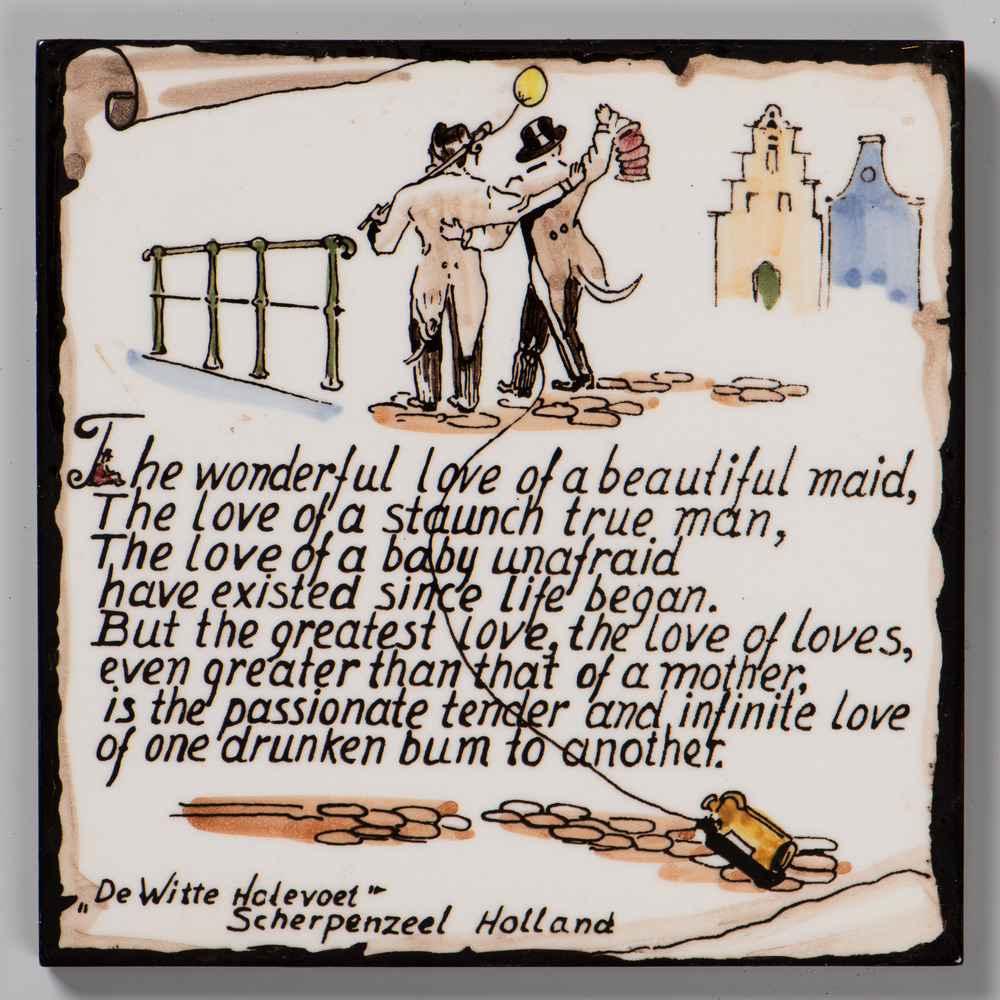 The wonderful love of a beautiful maid,
The love of a staunch true man,
The love of a baby unafraid
have existed since life began.
But the greatest love, the love of loves,
even greater than that of a mother,
is the passionate tender and infinite love
of one drunken bum to another.
„De Witte Holevoet"
Scherpenzeel Holland